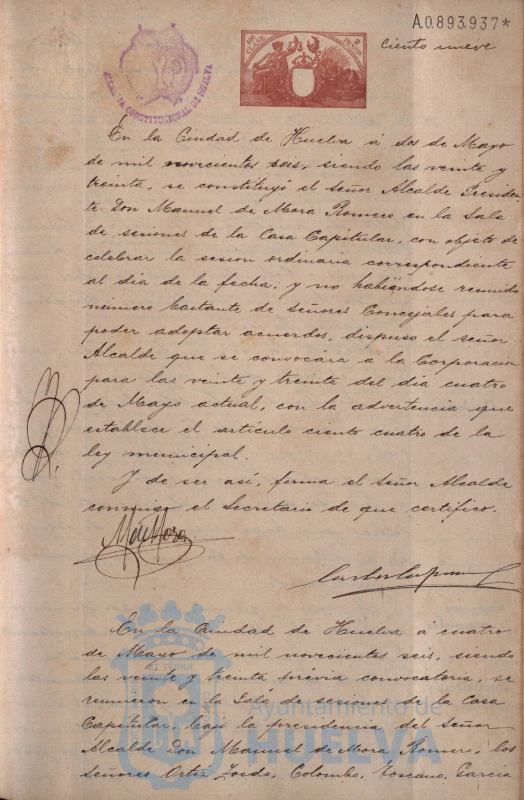 A.0.893.937*
10ª CLASE
2 PESETAS
ALCALDIA CONSTITUCIONAL DE HUELVA
Ciento nueve
En la Ciudad de Huelva á dos de Mayo
de mil novecientos seis, siendo las veinte y
treinta, se constituyó el Señor Alcalde Presiden-
te Don Manuel de Mora Romero en la Sala
de sesiones de la Casa Capitular, con objeto de
celebrar la sesion ordinaria correspondiente
al dia de la fecha; y no habiéndose reunido
número bastante de Señores Concejales para
poder adoptar acuerdos, dispuso el señor
Alcalde que se convocára a la Corporacion
para las veinte y treinta del dia cuatro
de Mayo actual, con la advertencia que
establece el articulo ciento cuatro de la
ley municipal.
Y de ser asi, firma el Señor Alcalde
conmigo el Secretario de que certifico.
M. de Mora
En la Ciudad de Huelva a cuatro
de Mayo de mil novecientos seis, siendo
las veinte y treinta prévia convocatoria, se
reunieron en la Sala de sesiones de la Casa
Capitular, bajo la presidencia del Señor
Alcalde Don Manuel de Mora Romero, los
Señores Ortiz Toedo, Colombo, Toscano, Garcia
Ayuntamiento de
HUELVA